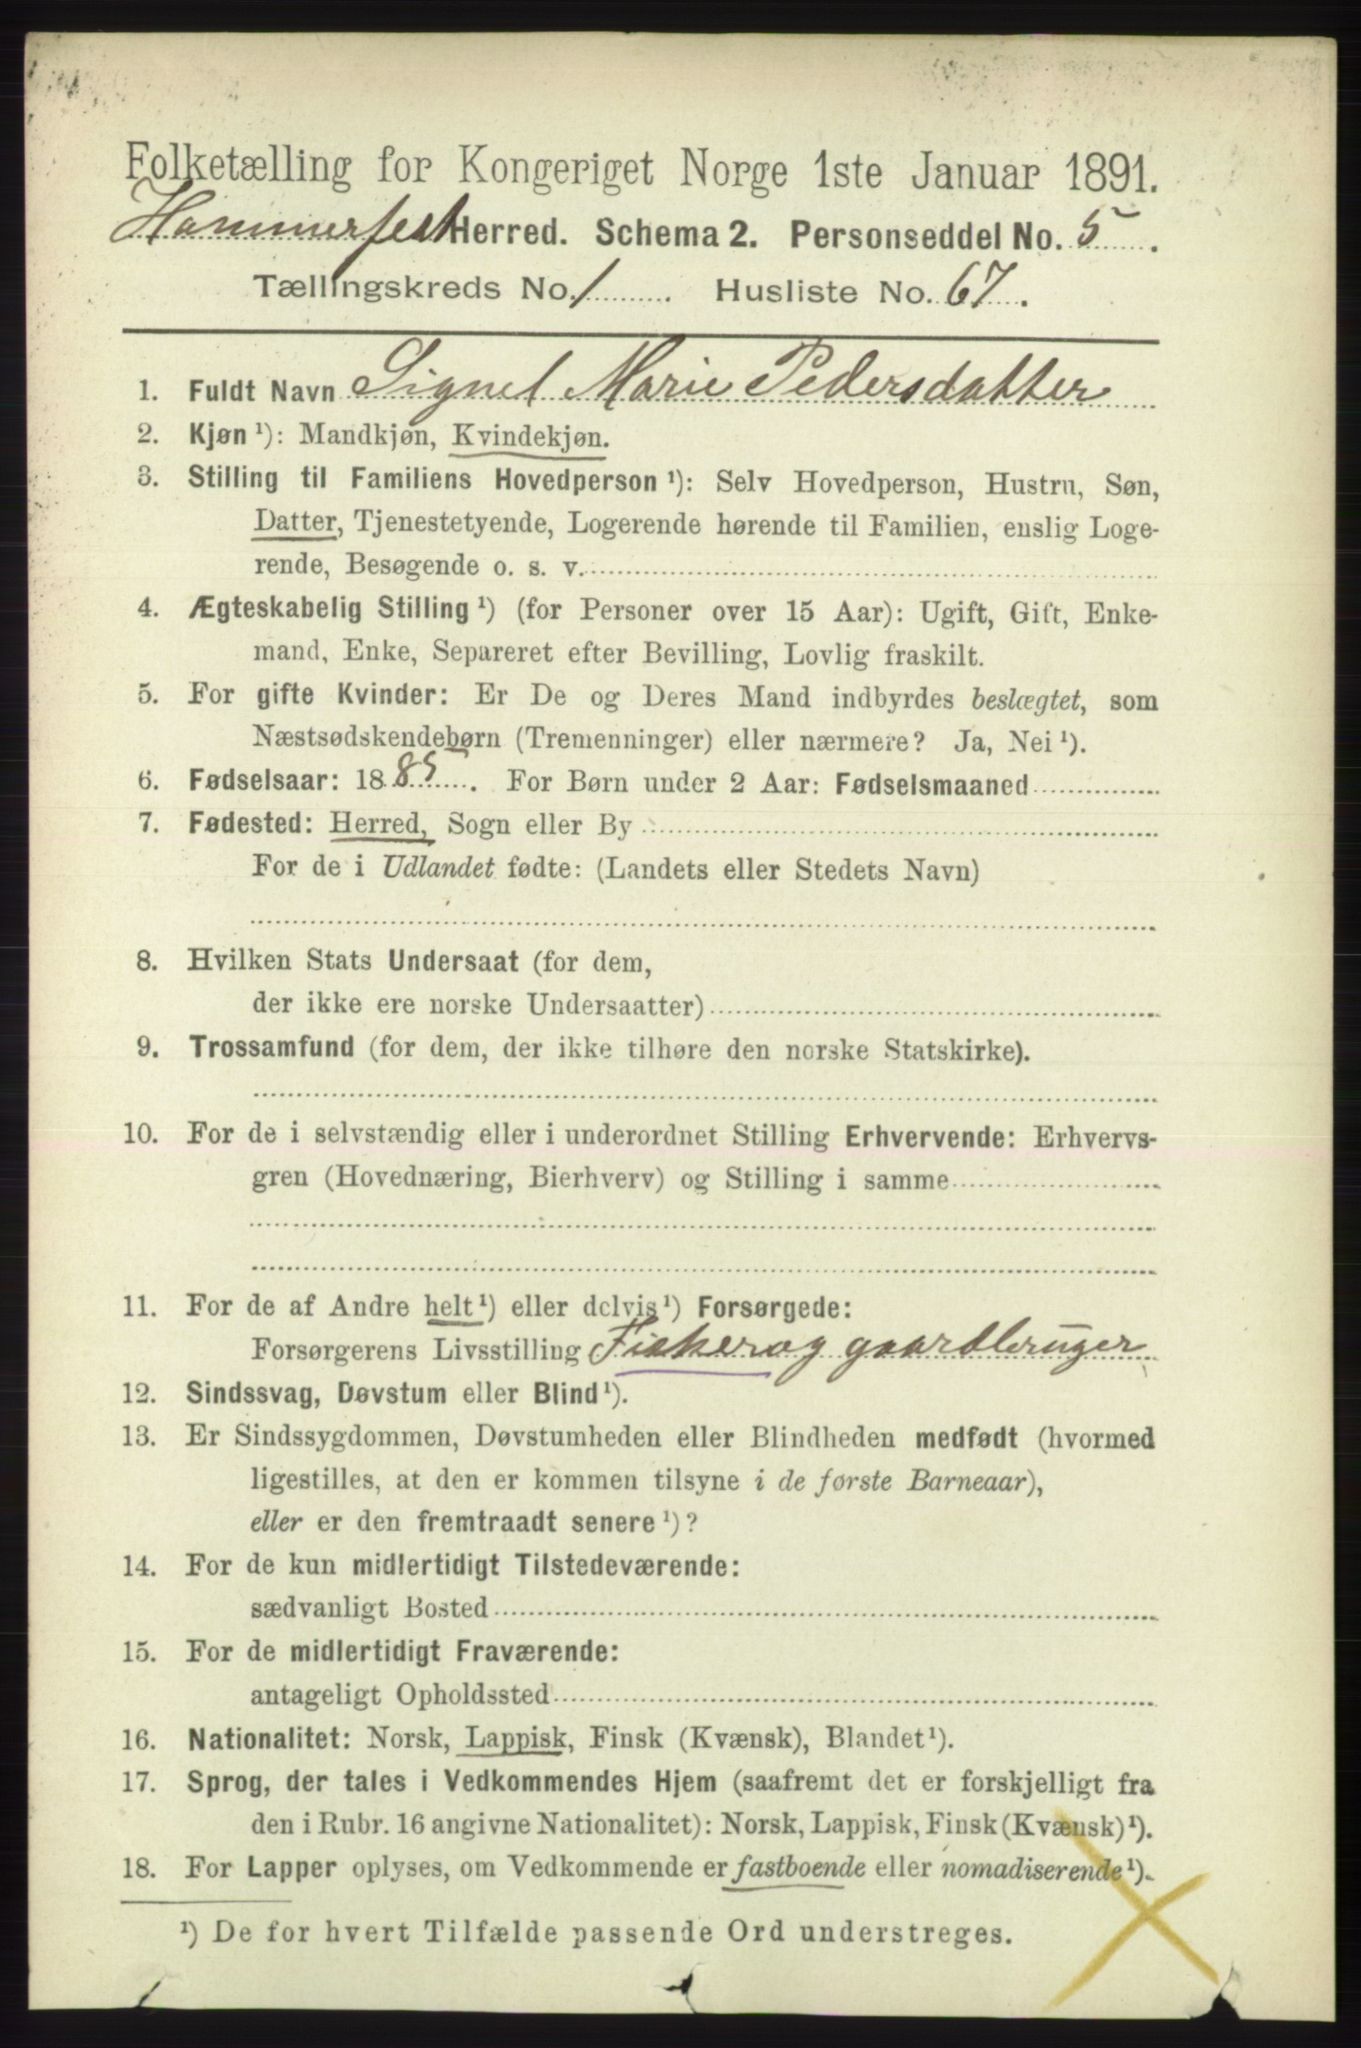 Folketælling for Kongeriget Norge 1ste Januar 1891.
Hammerfest Herred. Schema 2. Personseddel No. 5.
Tællingskreds No. 1. Husliste No. 67.
1. Fuldt Navn Signel Marie Pedersdatter
2. Kjøn ¹): Mandkjøn, Kvindekjøn.
3. Stilling til Familiens Hovedperson ¹): Selv Hovedperson, Hustru, Søn,
Datter, Tjenestetyende, Logerende hørende til Familien, enslig Loge-
rende, Besøgende o. s. v.
4. Ægteskabelig Stilling ¹) (for Personer over 15 Aar): Ugift, Gift, Enke-
mand, Enke, Separeret efter Bevilling, Lovlig fraskilt.
5. For gifte Kvinder: Er De og Deres Mand indbyrdes beslægtet, som
Næstsødskendebørn (Tremenninger) eller nærmere? Ja, Nei ¹).
6. Fødselsaar: 1885. For Børn under 2 Aar: Fødselsmaaned
7. Fødested: Herred, Sogn eller By
For de i Udlandet fødte: (Landets eller Stedets Navn)
8. Hvilken Stats Undersaat (for dem,
der ikke ere norske Undersaatter)
9. Trossamfund (for dem, der ikke tilhøre den norske Statskirke).
10. For de i selvstændig eller i underordnet Stilling Erhvervende: Erhvervs-
gren (Hovednæring, Bierhverv) og Stilling i samme
11. For de af Andre helt ¹) eller delvis ¹) Forsørgede:
Forsørgerens Livsstilling Fisker og gaardbruger
12. Sindssvag, Døvstum eller Blind ¹).
13. Er Sindssygdommen, Døvstumheden eller Blindheden medfødt (hvormed
ligestilles, at den er kommen tilsyne i de første Barneaar),
eller er den fremtraadt senere ¹)?
14. For de kun midlertidigt Tilstedeværende:
sædvanligt Bosted
15. For de midlertidigt Fraværende:
antageligt Opholdssted
16. Nationalitet: Norsk, Lappisk, Finsk (Kvænsk), Blandet ¹).
17. Sprog, der tales i Vedkommendes Hjem (saafremt det er forskjelligt fra
den i Rubr. 16 angivne Nationalitet): Norsk, Lappisk, Finsk (Kvænsk) ¹).
18. For Lapper oplyses, om Vedkommende er fastboende eller nomadiserende ¹).
¹) De for hvert Tilfælde passende Ord understreges.